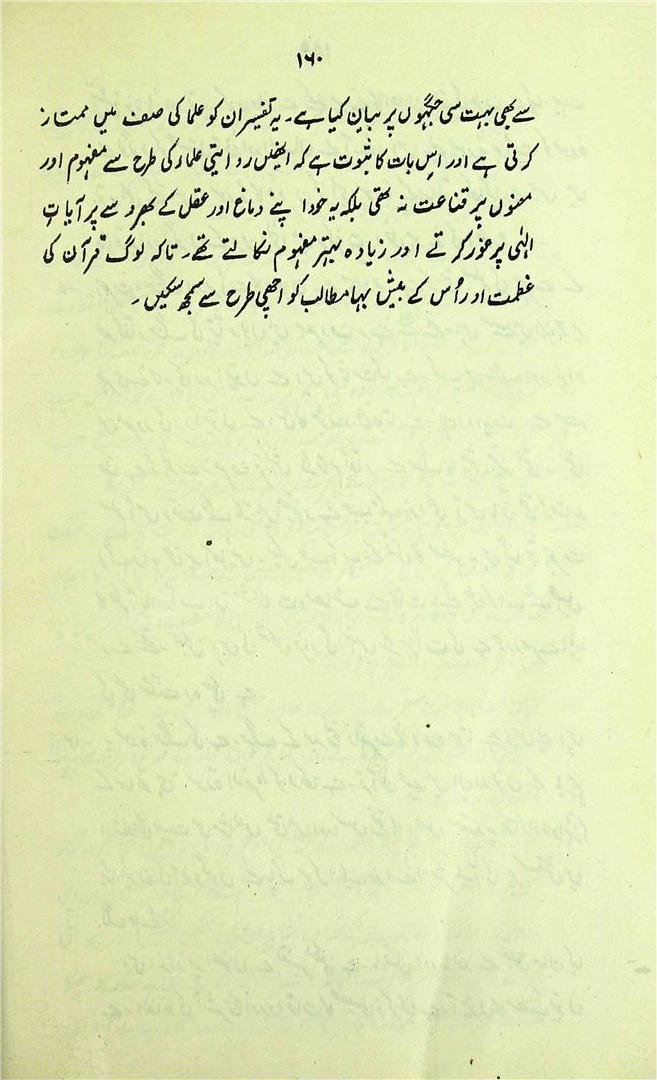 ۱۶۰
سے بھی بہت سی جگہوں پر بیان کیا ہے۔ یہ تفسیر ان کو علما کی صف میں ممتاز
کرتی ہے اور اس بات کا ثبوت ہے کہ انھیں روایتی علماء کی طرح سے مفہوم اور
معنوں پر قناعت نہ تھی بلکہ یہ خود اپنے دماغ اور عقل کے بھروسے پر آیاتِ
الٰہی پر غور کرتے اور زیادہ بہتر مفہوم نکالتے تھے۔ تاکہ لوگ قرآن کی
عظمت اور اُس کے بیش بہا مطالب کو اچھی طرح سے سمجھ سکیں۔